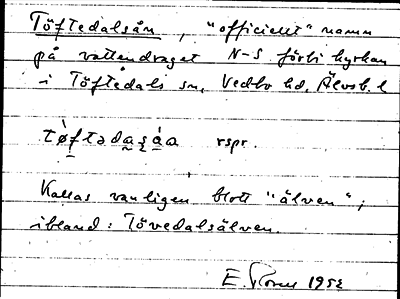 Töftedalsån, "officiellt" namn
på vattendraget N-S förbi kyrkan
i Töftedals sn, Vedbo hd, Älvsb. l
tøftədaʂåa rspr.
Kallas vanligen blott "älven";
ibland: Tövedalsälven.
E. 1952